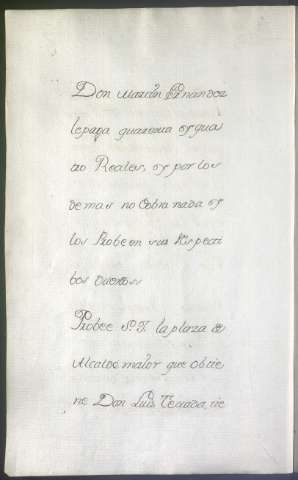 Don Martin Ernandez
le paga quarenta y qua
tro Reales, y por los
demas no Cobra nada y
los Probe en sus Respecti
bos Dueños
Probee S. E. la plaza de
Alcalde maior que obtie
ne Don Luis Texada, tie